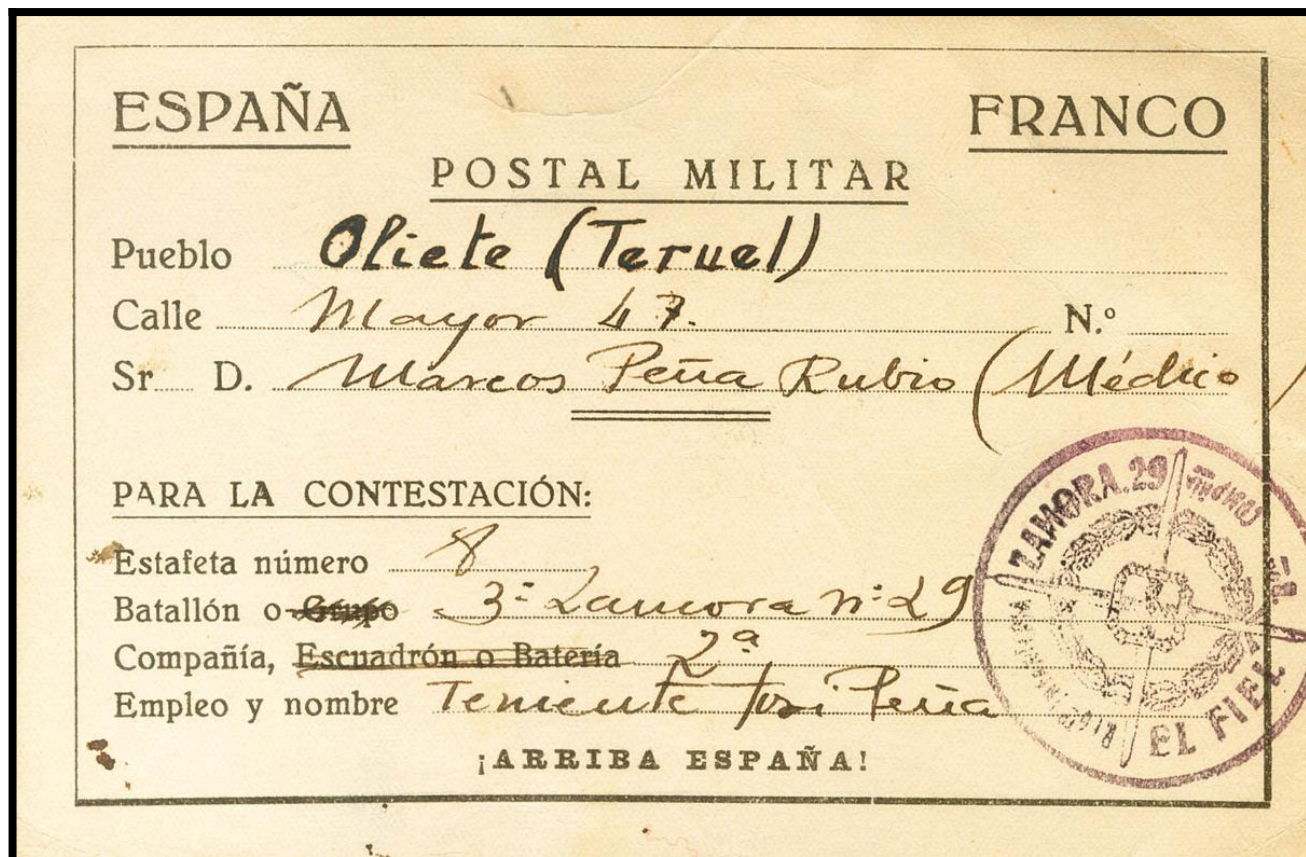 ESPAÑA FRANCO
POSTAL MILITAR
Pueblo Oliete (Teruel)
Calle Mayor 47. N.º
Sr. D. Marcos Peña Rubio (Médico)
PARA LA CONTESTACIÓN:
Estafeta número 8
Batallón o Grupo 3º Zamora nº 29
Compañía, Escuadrón o Batería 2ª
Empleo y nombre Teniente José Peña
¡ARRIBA ESPAÑA!
ZAMORA.29
EL FIEL